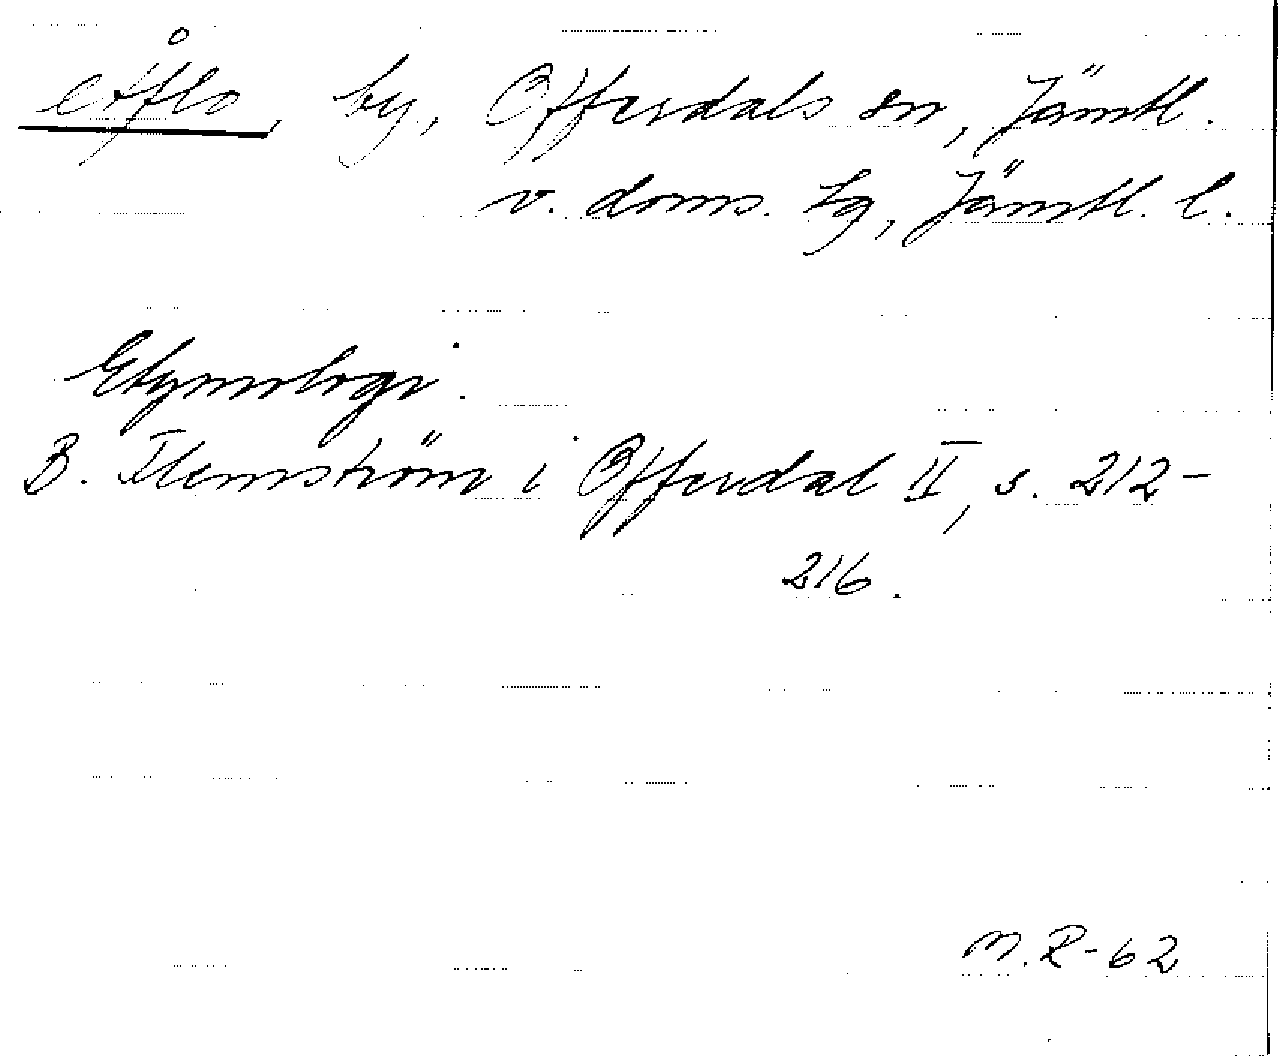 Åflo, by, Offerdals sn, Jämtl.
v. doms. tg, Jämtl. l.
Etymologi.
B. Flemström i Offerdal II, s. 212-
216.
M.R-62